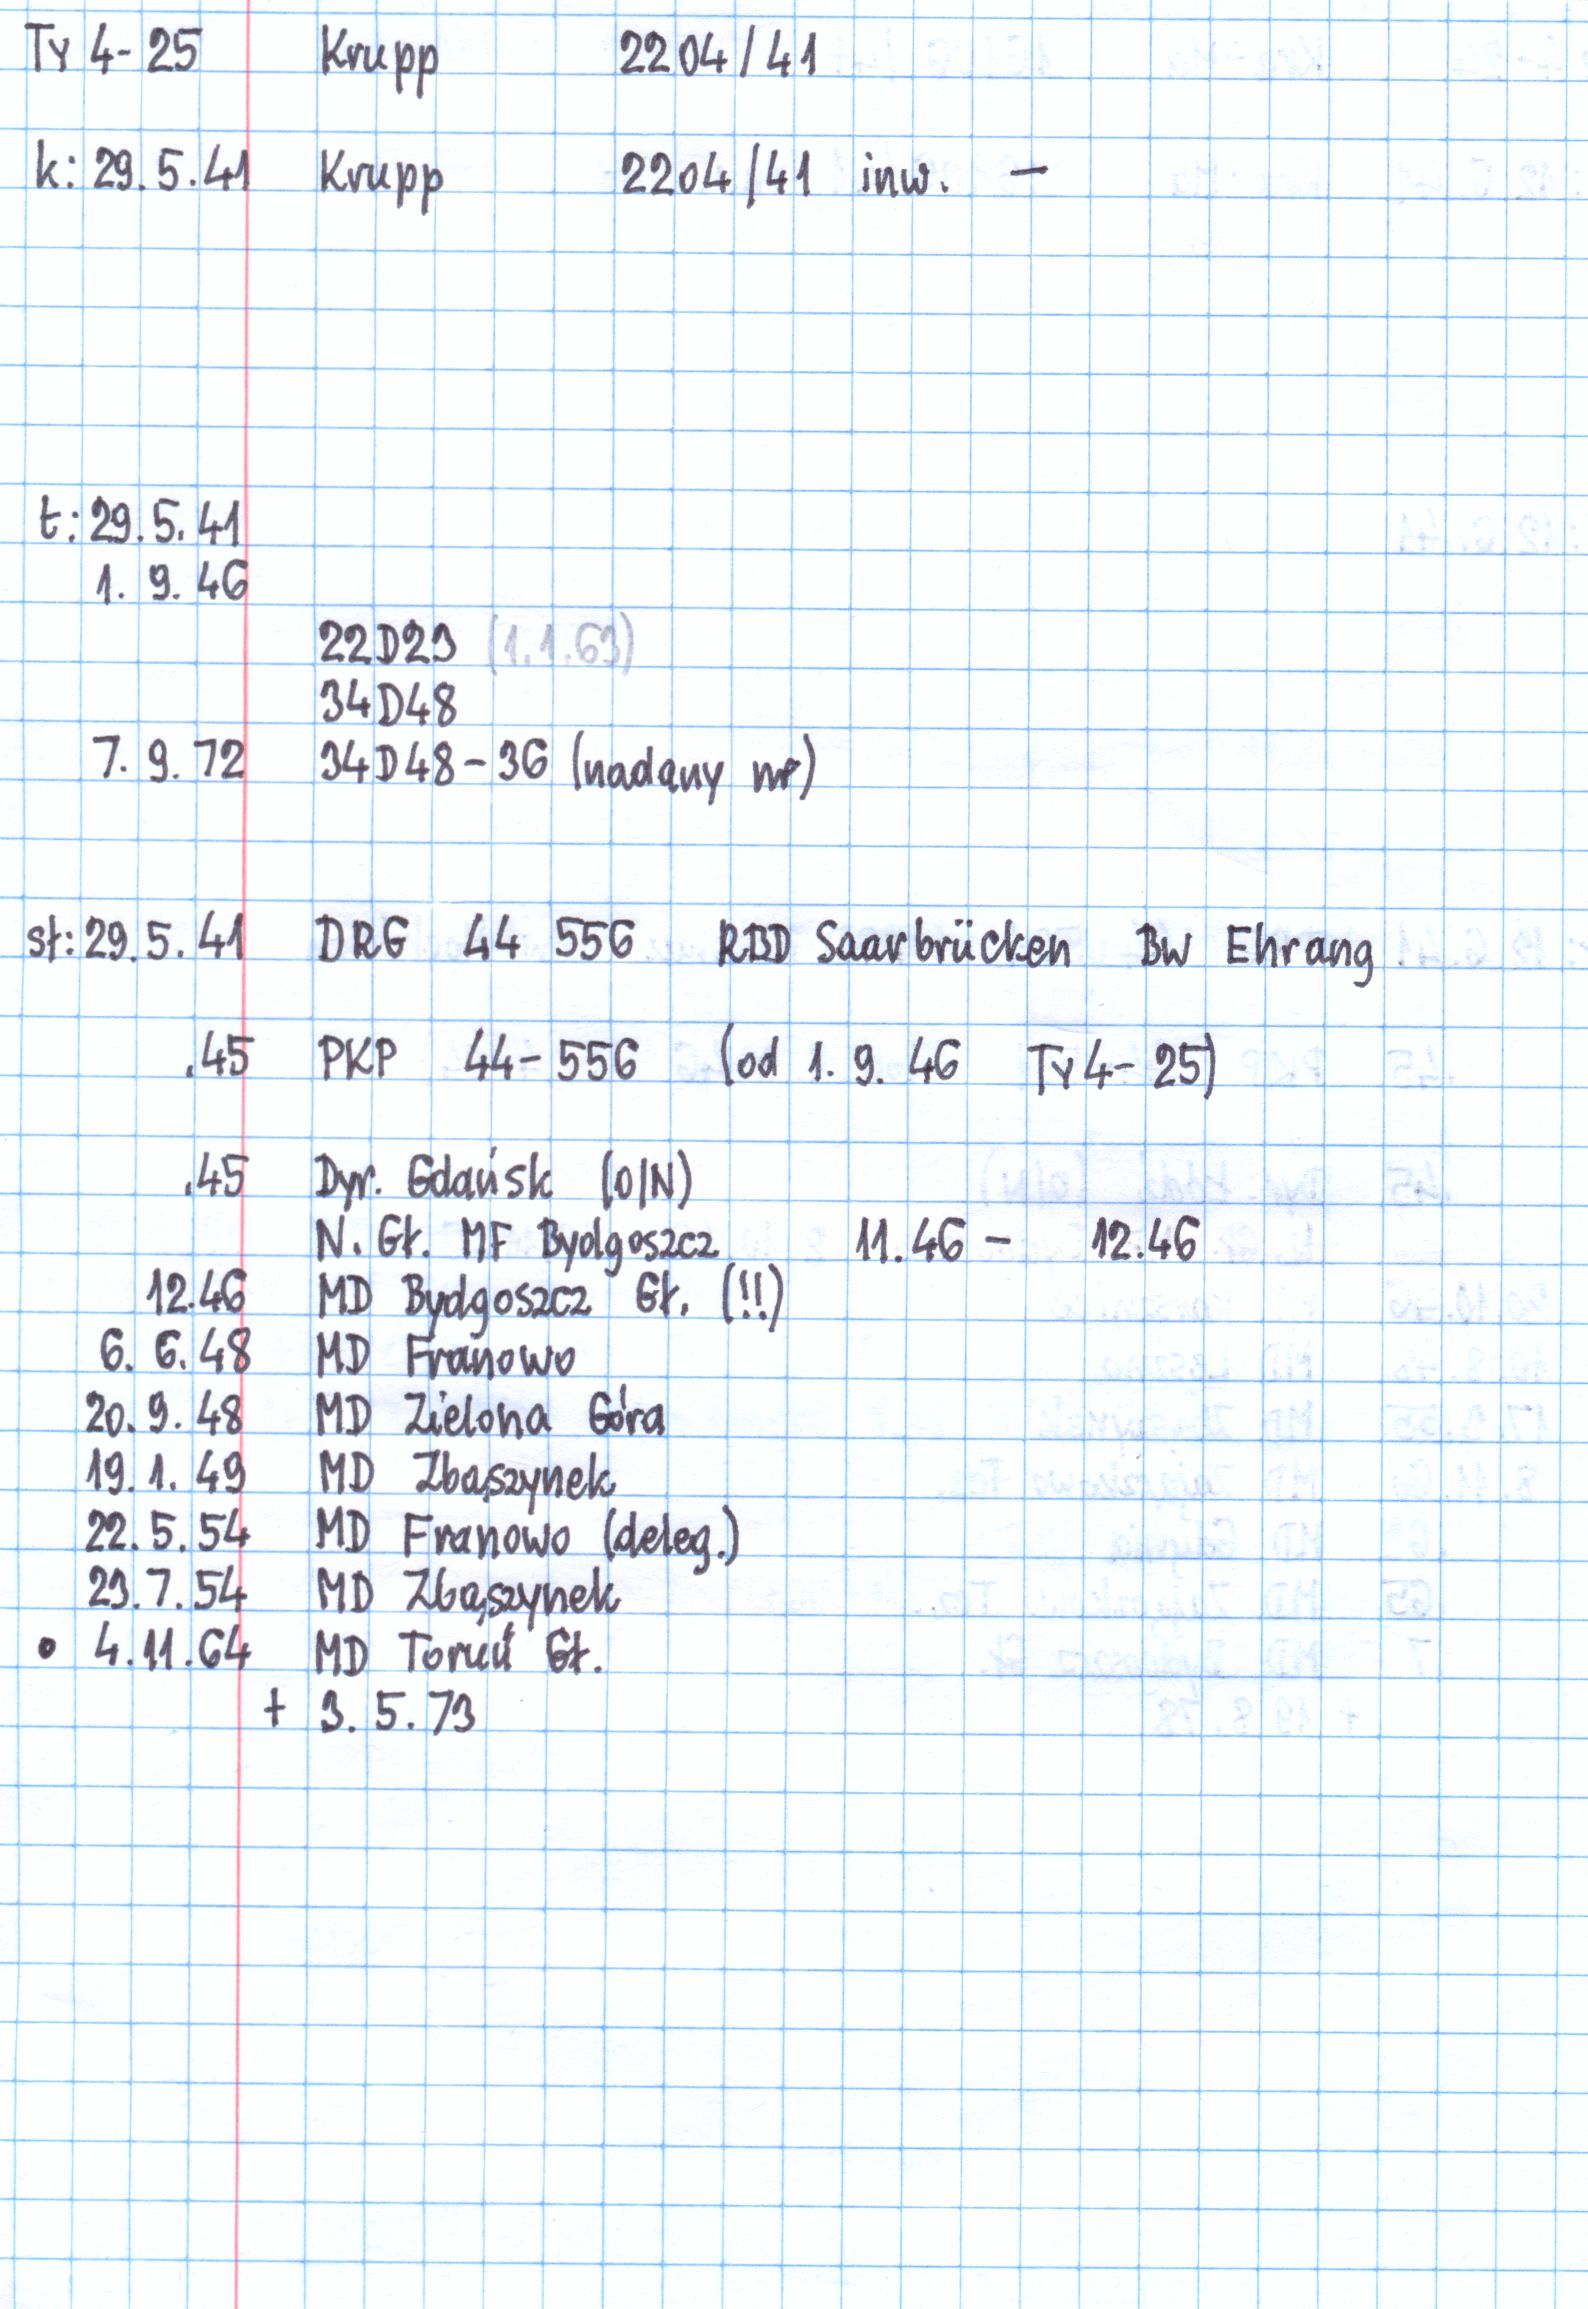 Ty 4-25 Krupp 2204/41
k: 29.5.41 Krupp 2204/41 inw. -
t: 29.5.41
1. 9. 46
22D23 (1.1.63)
34D48
7. 9. 72 34D48-36 (nadany nr)
st: 29.5.41 DRG 44 556 RBD Saarbrücken BW Ehrang
.45 PKP 44-556 (od 1. 9. 46 Ty 4-25)
.45 Dyr. Gdańsk (O/N)
N. Gł. MF Bydgoszcz 11.46 - 12.46
12.46 MD Bydgoszcz Gł. (!!)
6. 6. 48 MD Franowo
20. 9. 48 MD Zielona Góra
19. 1. 49 MD Zbąszynek
22. 5. 54 MD Franowo (deleg.)
23. 7. 54 MD Zbąszynek
• 4. 11. 64 MD Toruń Gł.
+ 3. 5. 73